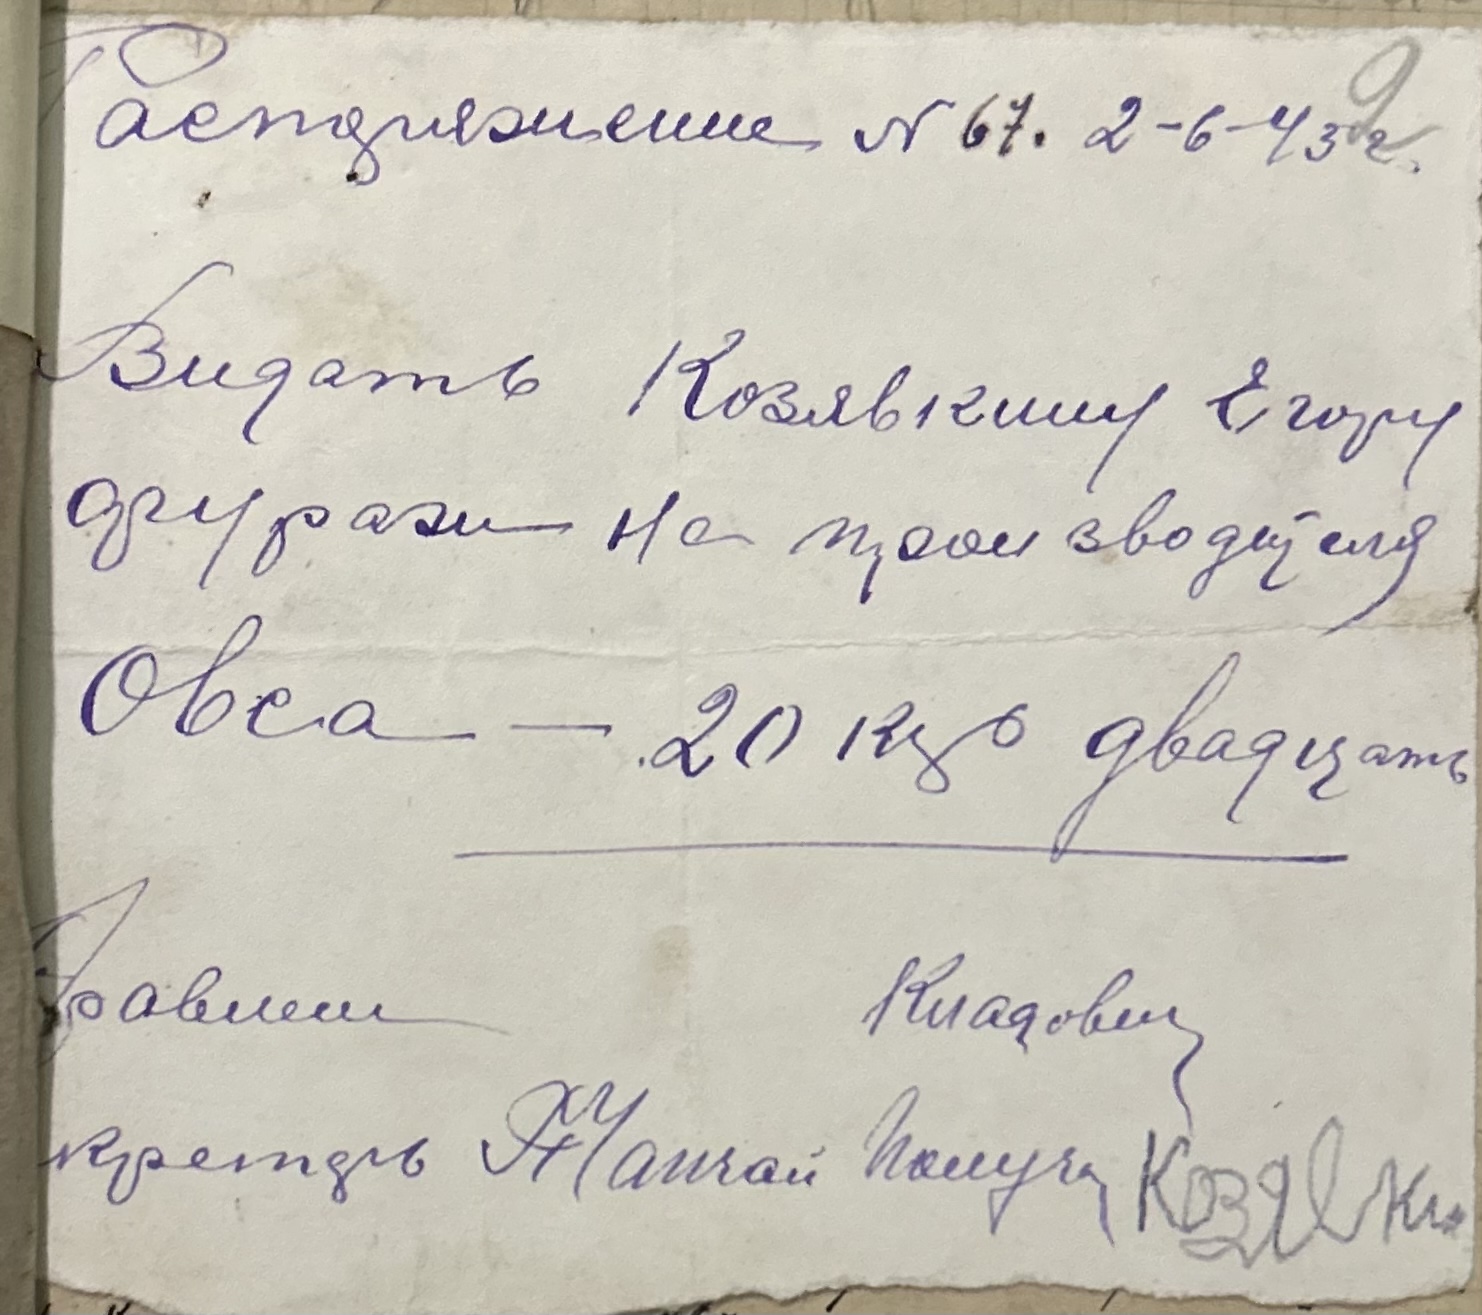 Распоряжение N 67. 2-6-43 г.
9
Видать Козявкину Егору
фуражи на производителя
Овса — 20 кгр двадцать
Кладовщ
Получ Козявкин